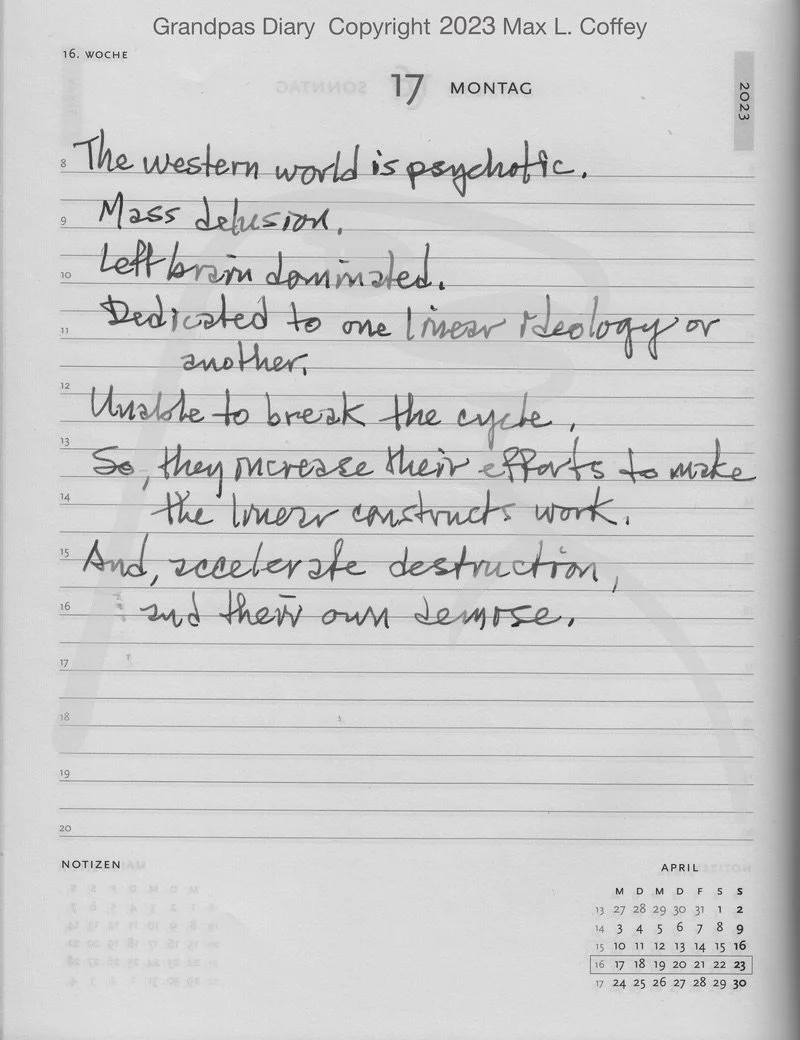 Grandpas Diary Copyright 2023 Max L. Coffey
16. WOCHE
17 MONTAG
2023
8 The western world is psychotic.
9 Mass delusion.
10 Left brain dominated.
11 Dedicated to one linear ideology or
another.
12 Unable to break the cycle,
13 So, they increase their efforts to make
14 the linear constructs work.
15 And, accelerate destruction,
16 and their own demise.
17
18
19
20
NOTIZEN
APRIL
M D M D F S S
13 27 28 29 30 31 1 2
14 3 4 5 6 7 8 9
15 10 11 12 13 14 15 16
16 17 18 19 20 21 22 23
17 24 25 26 27 28 29 30